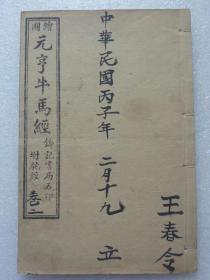 中華民國丙子年 二月十九 立
王春令
繪圖
元亨牛馬經
錦記書局石印
附駝經
卷二